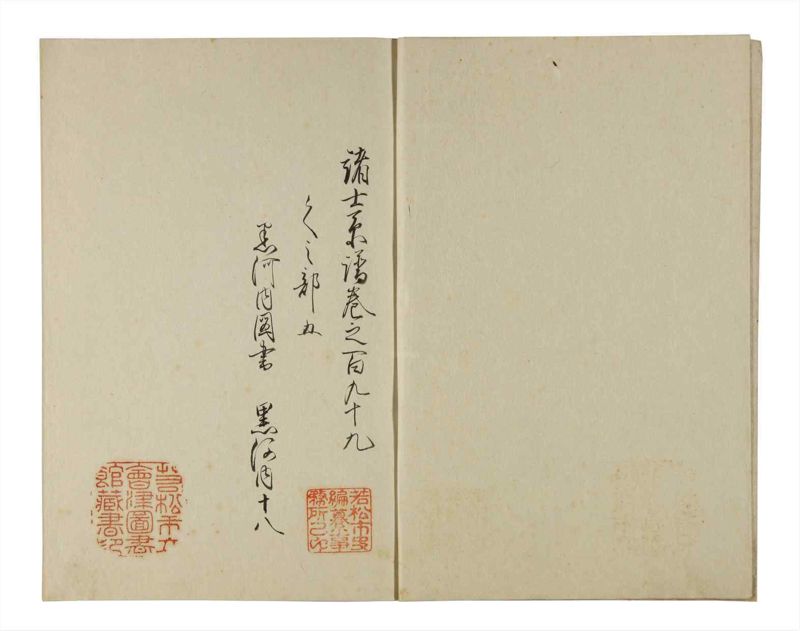 諸士系譜巻之百九十九
く之部 五
黒河内図書 黒河内十八
若松市史編纂事務所之印
若松市立會津圖書館藏書印